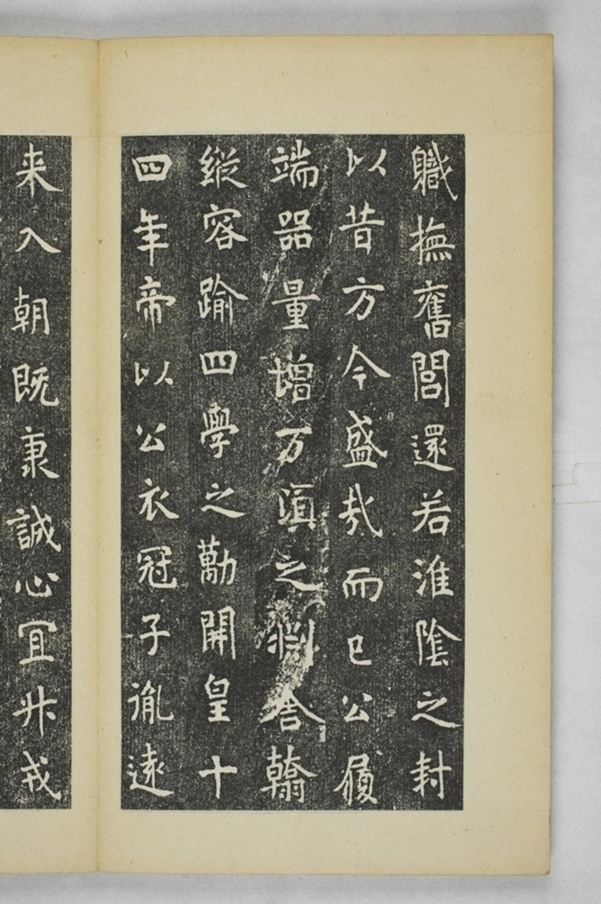 軄撫舊閭還若淮陰之封
以昔方今盛㢤而已公履
端器量增万頃之淵含翰
縱容踰四學之勸開皇十
四年帝以公衣冠子胤遠
来入朝既秉誠心宜升戎